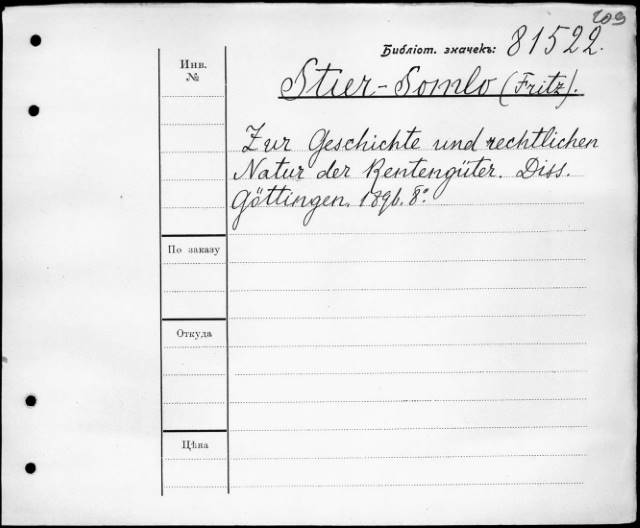 203
Библіот. значекъ: 81522.
Инв.
№
Stier-Somlo (Fritz).
Zur Geschichte und rechtlichen
Natur der Rentengüter. Diss.
Göttingen. 1896. 8°.
По заказу
Откуда
Цѣна